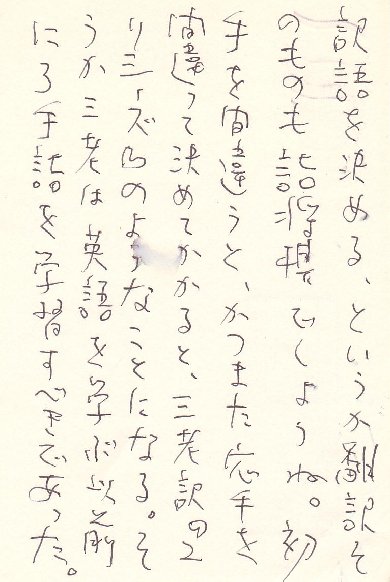 訳語を決める、というか翻訳そ
のものも詰将棋でしょうね。初
手を間違うと、かつまた応手を
間違って決めてかかると、三老訳のユ
リシーズ凸のようなことになる。そ
うか三老は英語を学ぶ以前
に3手詰を学習すべきであった。